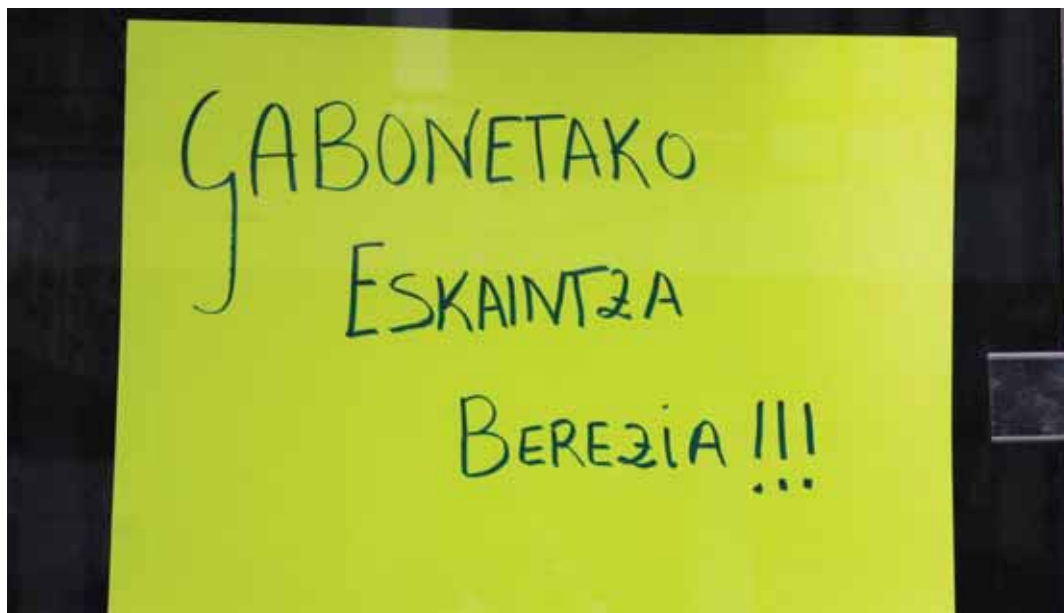 GABONETAKO
ESKAINTZA
BEREZiA !!!